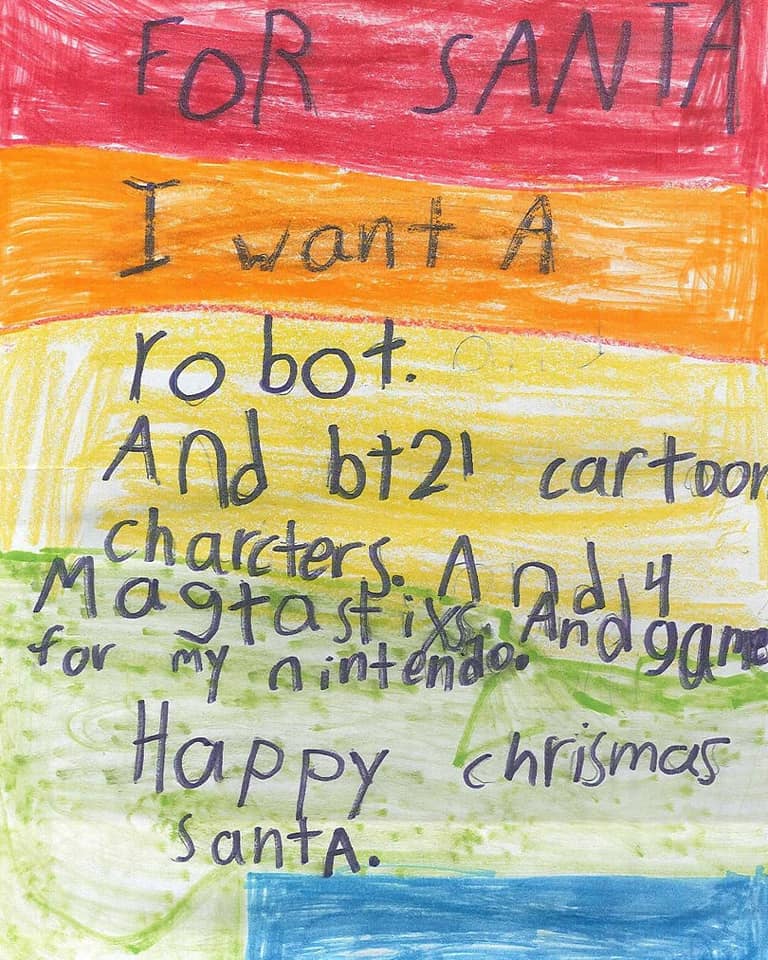 FOR SANTA
I want A
robot.
And bt21 cartoon
charcters. And 14
Magtastixs. And game
for my nintendo.
Happy chrismas
santA.